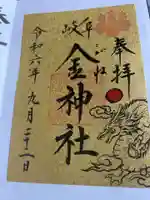 奉拝
岐阜
金神社
こがね
令和六年九月二十二日